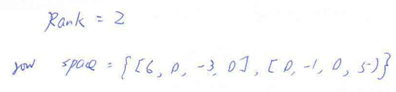 Rank = 2
row space = {[6, 0, -3, 0], [0, -1, 0, 5]}